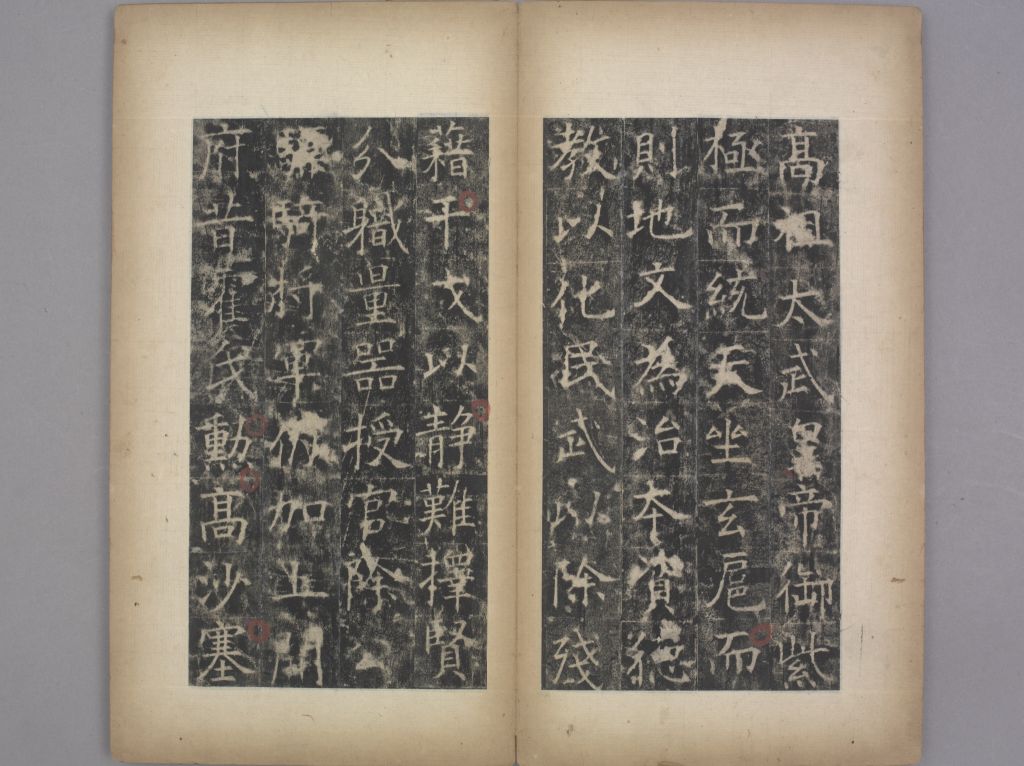 高祖太武皇帝御紫
極而統天坐玄扈而
則地文為治本資德
教以化民武以除殘
藉干戈以靜難擇賢
分職量器授官除
驃騎將軍仍加上開
府昔舊民勳高沙塞